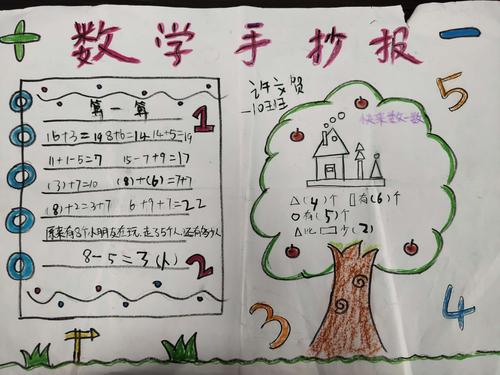 + 数学手抄报 -
算一算
1
16+3=19 8+6=14 14+5=19
11+1-5=7 15-7+9=17
(3)+7=10 (8)+(6)=7+7
(8)+2=3+7 6+9+7=22
原来有8个小朋友在玩,走了5个人,还有多少人
8-5=3(人)
2
一10班
快来数一数
△(4)个 ▯有(6)个
○有(5)个
△比▭少(2)
5
3
4